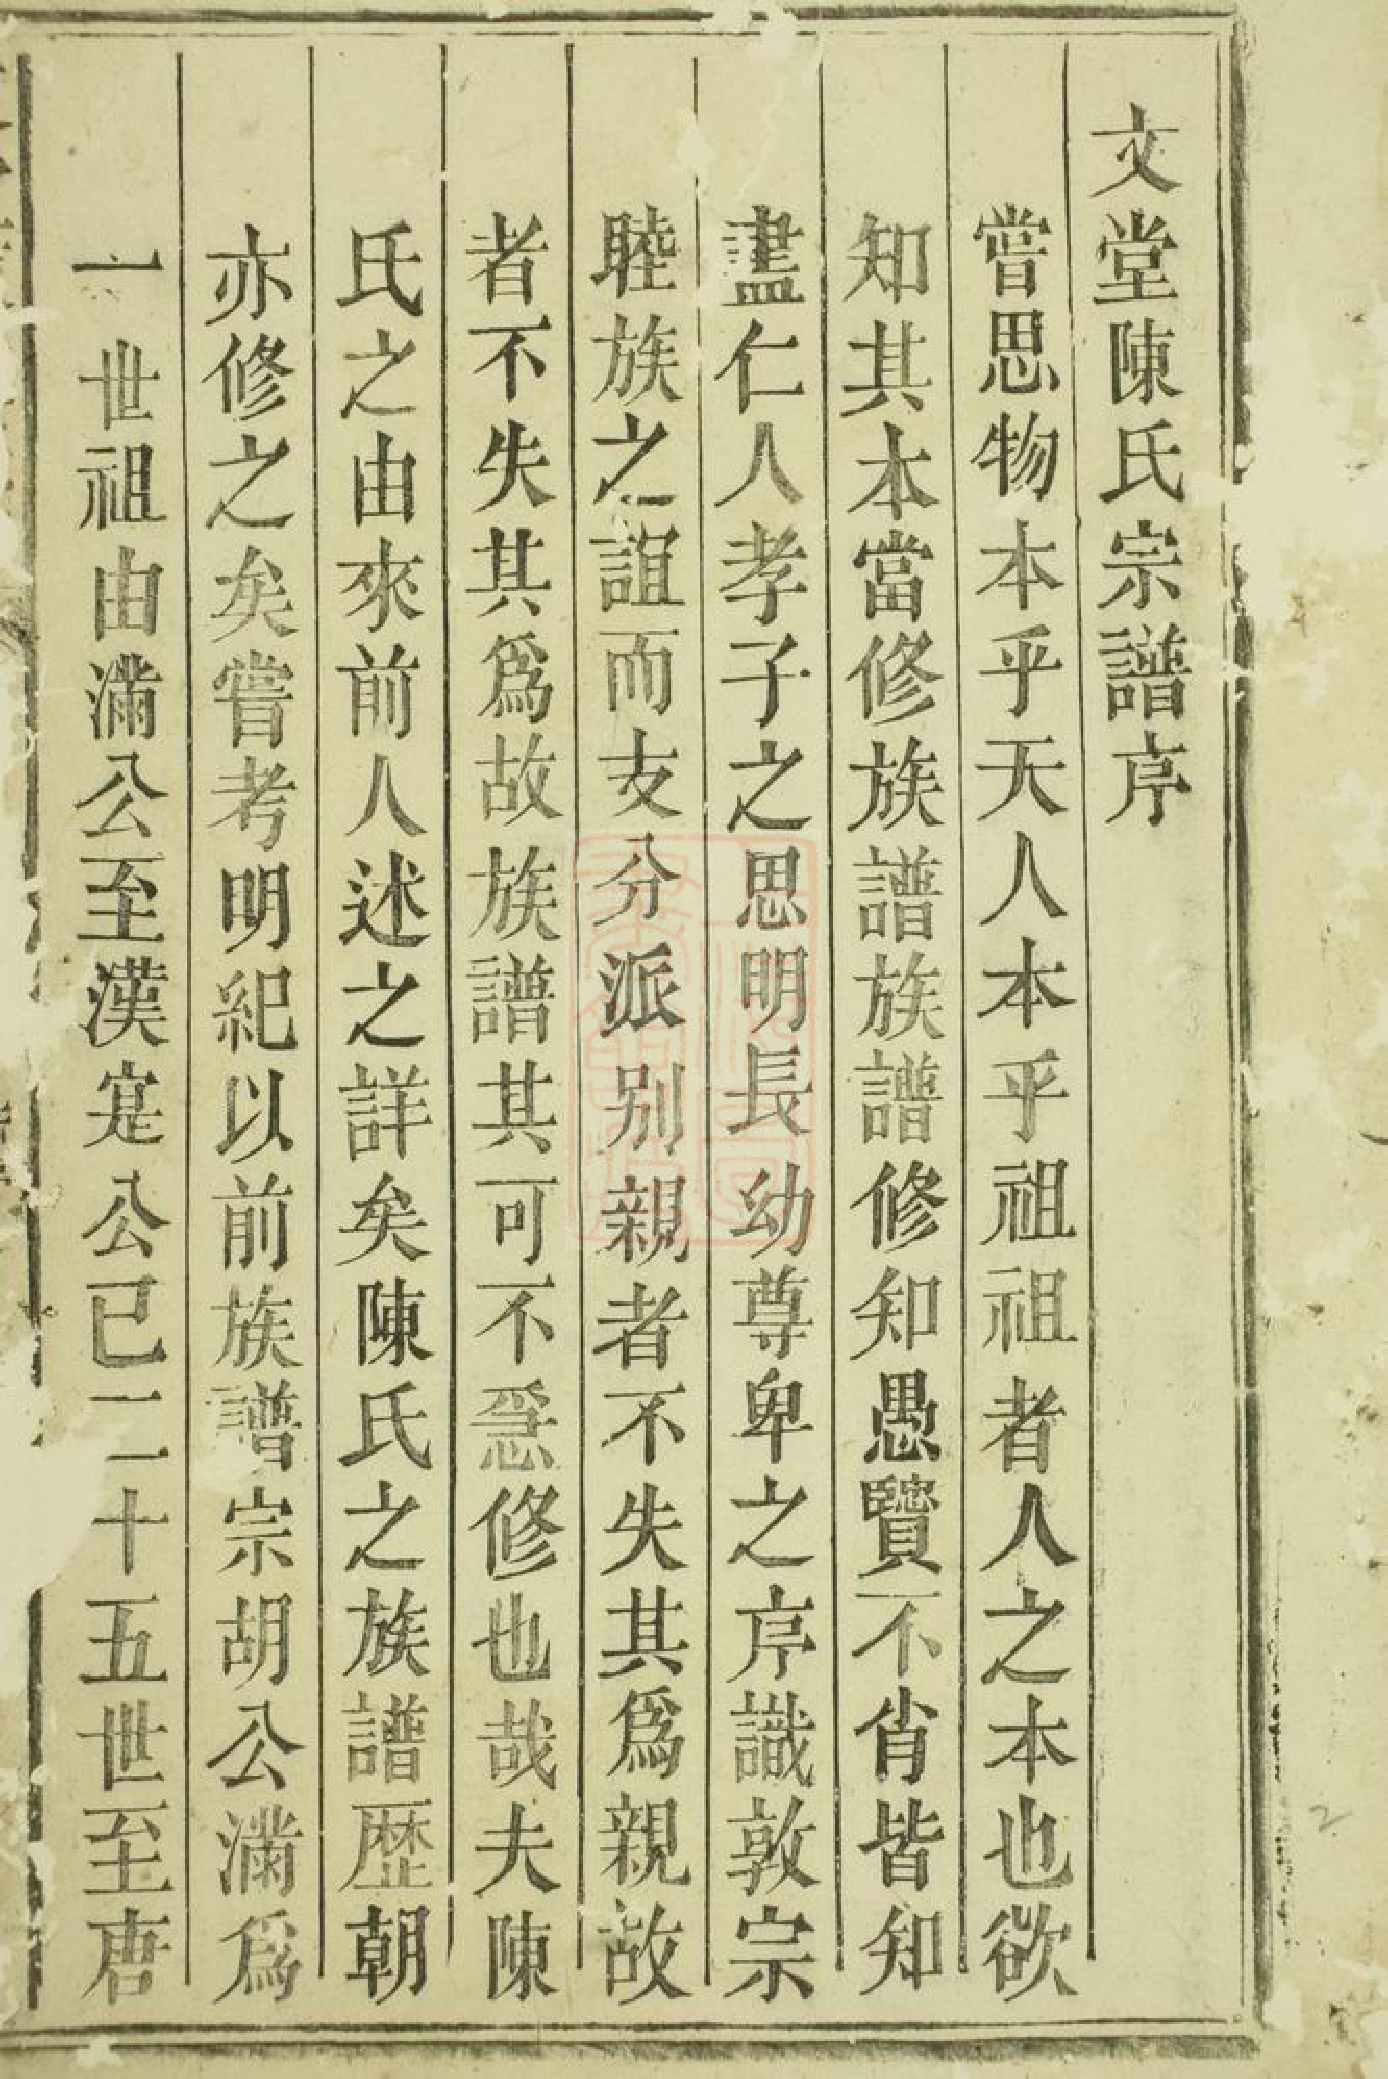 文堂陳氏宗譜序
嘗思物本乎天人本乎祖祖者人之本也欲
知其本當修族譜族譜修知愚賢不肖皆知
盡仁人孝子之思明長幼尊卑之序識敦宗
睦族之誼而支分派别親者不失其為親故
者不失其為故族譜其可不急修也哉夫陳
氏之由來前人述之詳矣陳氏之族譜歷朝
亦修之矣嘗考明紀以前族譜宗胡公滿為
一世祖由滿公至漢寔公已二十五世至唐